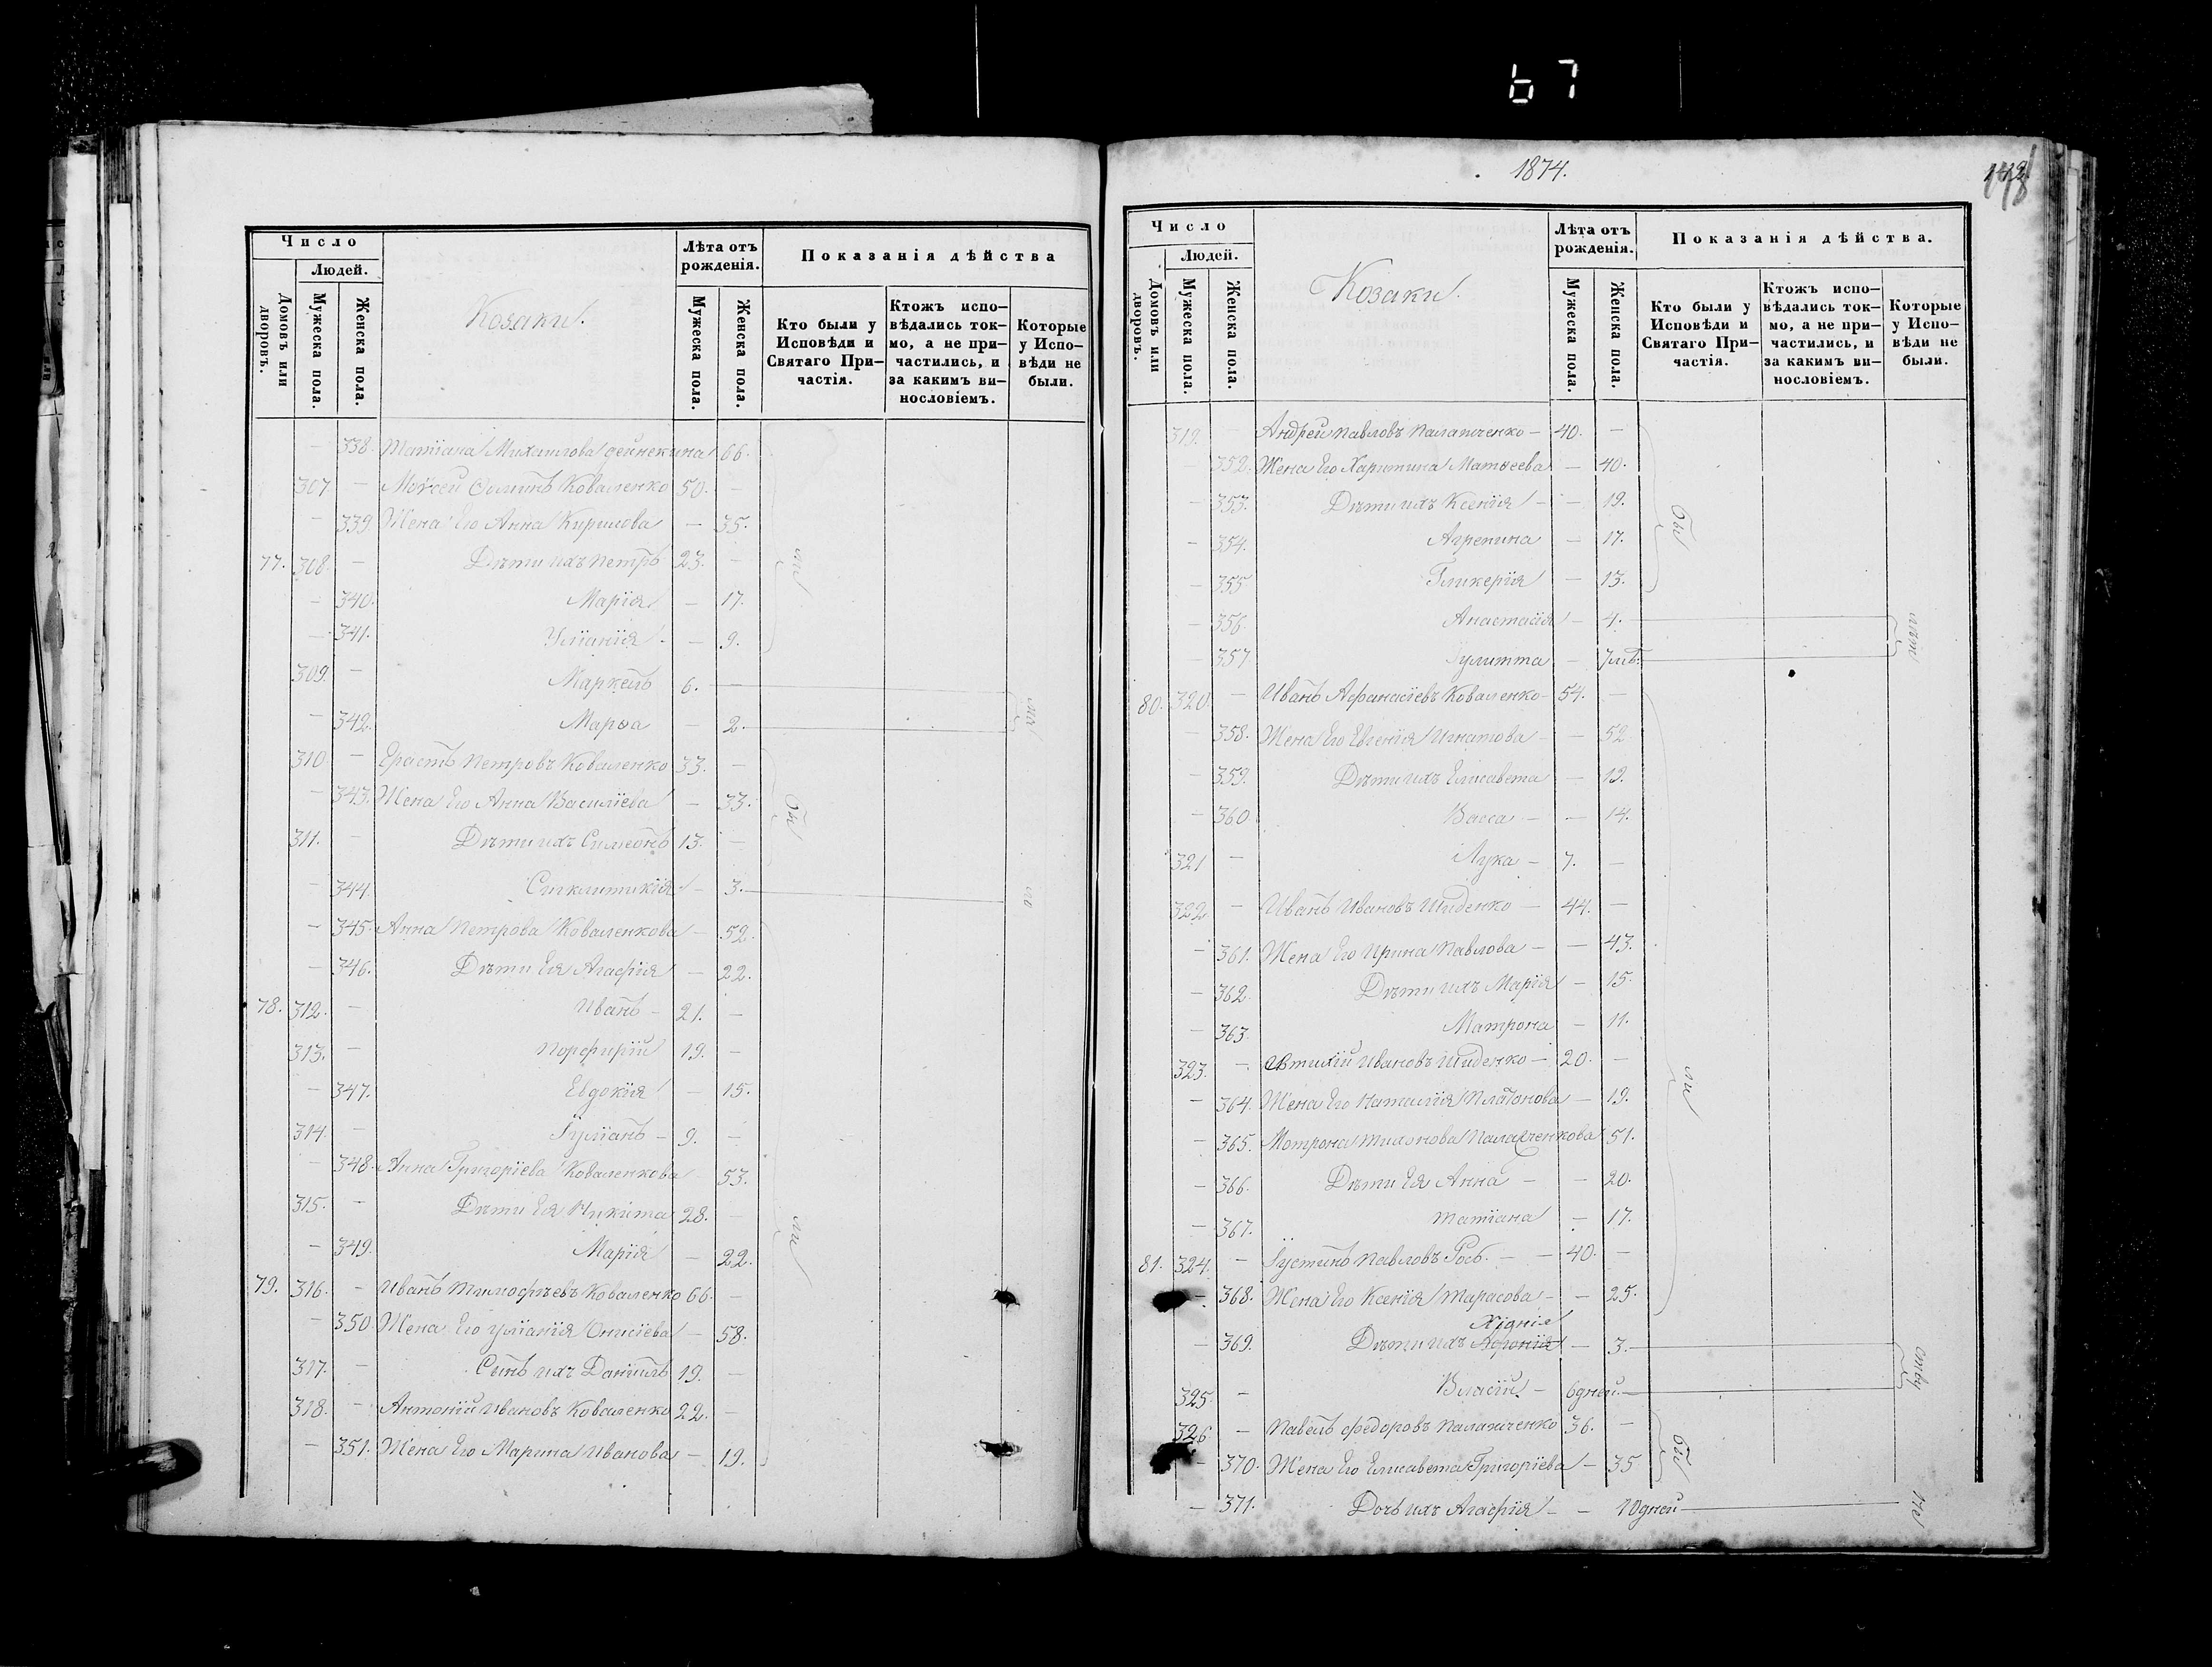 67
Число
Людей.
Домовъ или дворовъ.
Мужеска пола.
Женска пола.
Козаки.
Лѣта отъ рожденія.
Мужеска пола.
Женска пола.
Показанія дѣйства
Кто были у Исповѣди и Святаго При-частія.
Ктожъ испо-вѣдались ток-мо, а не при-частились, и за какимъ ви-нословіемъ.
Которые у Испо-вѣди не были.
— 338. Татіана Михаилова 66.
307 — Моѵсей Коваленко 50. —
— 339. Жена Его Анна Кирилова — 35.
77. 308. — Дѣти ихъ Петръ 23. —
— 340. Марія — 17.
— 341. Уліанія — 9.
309. — Маркелъ 6. —
— 342. Марѳа — 2.
310 — Ерастъ Петровъ Коваленко 33. —
— 343. Жена Его Анна Василіева — 33.
311. — Дѣти ихъ Симеонъ 13. —
— 344. — 3.
— 345. Анна Петрова Коваленкова — 52.
— 346. Дѣти Ея Агафія — 22.
78. 312. — Иванъ — 21. —
313. — Порфирій 19. —
— 347. Евдокія — 15.
314. — Іуліанъ — 9. —
— 348. Анна Григоріева Коваленкова 53.
315. — Дѣти Ея Никита 28. —
— 349. Марія — 22.
79. 316. — Иванъ Тимофѣевъ Коваленко 66. —
— 350. Жена Его Уліанія Онисіева — 58.
317. — Сынъ ихъ Даніилъ 19. —
318. — Антоній Ивановъ Коваленко 22. —
— 351. Жена Его Марина Иванова — 19.
1874.
Число
Людей.
Домовъ или дворовъ.
Мужеска пола.
Женска пола.
Козаки.
Лѣта отъ рожденія.
Мужеска пола.
Женска пола.
Показанія дѣйства.
Кто были у Исповѣди и Святаго При-частія.
Ктожъ испо-вѣдались ток-мо, а не при-частились, и за какимъ ви-нословіемъ.
Которые у Испо-вѣди не были.
319. — Андрей Павловъ — 40. —
— 352. Жена Его Харитина Матѳеева — 40.
— 353. Дѣти ихъ Ксенія — — 19.
— 354. Агрепина — 17.
— 355 Гликерія — 13.
— 356. Анастасія — 4.
— 357 Іулитта —
80. 320. — Иванъ Афанасіевъ Коваленко — 54. —
— 358. Жена Его Евгенія Игнатова — — 52
— 359. Дѣти ихъ Елисавета — 19.
— 360. Васса — — 14.
321 — Лука — 7. —
322 — Иванъ Ивановъ Шиденко — 44. —
— 361. Жена Его Ирина Павлова — — 43.
— 362. Дѣти ихъ Марія — 15.
— 363. Матрона — 11.
323. — Ивановъ Шиденко — 20. —
— 364. Жена Его Наталія Платонова — 19.
— 365. Мотрона 51.
— 366. Дѣти Ея Анна — — 20.
— 367. Татіана — 17.
81. 324. — Іустинъ Павловъ — — 40. —
— 368. Жена Его Ксенія Тарасова — — 25.
— 369. Дѣти ихъ — 3.
325. — Власій — 6 дней.
326 — Павелъ Федоровъ 36. —
— 370. Жена Его Елисавета Григоріева — 35
— 371. Дочь ихъ Агафія — — 10 дней